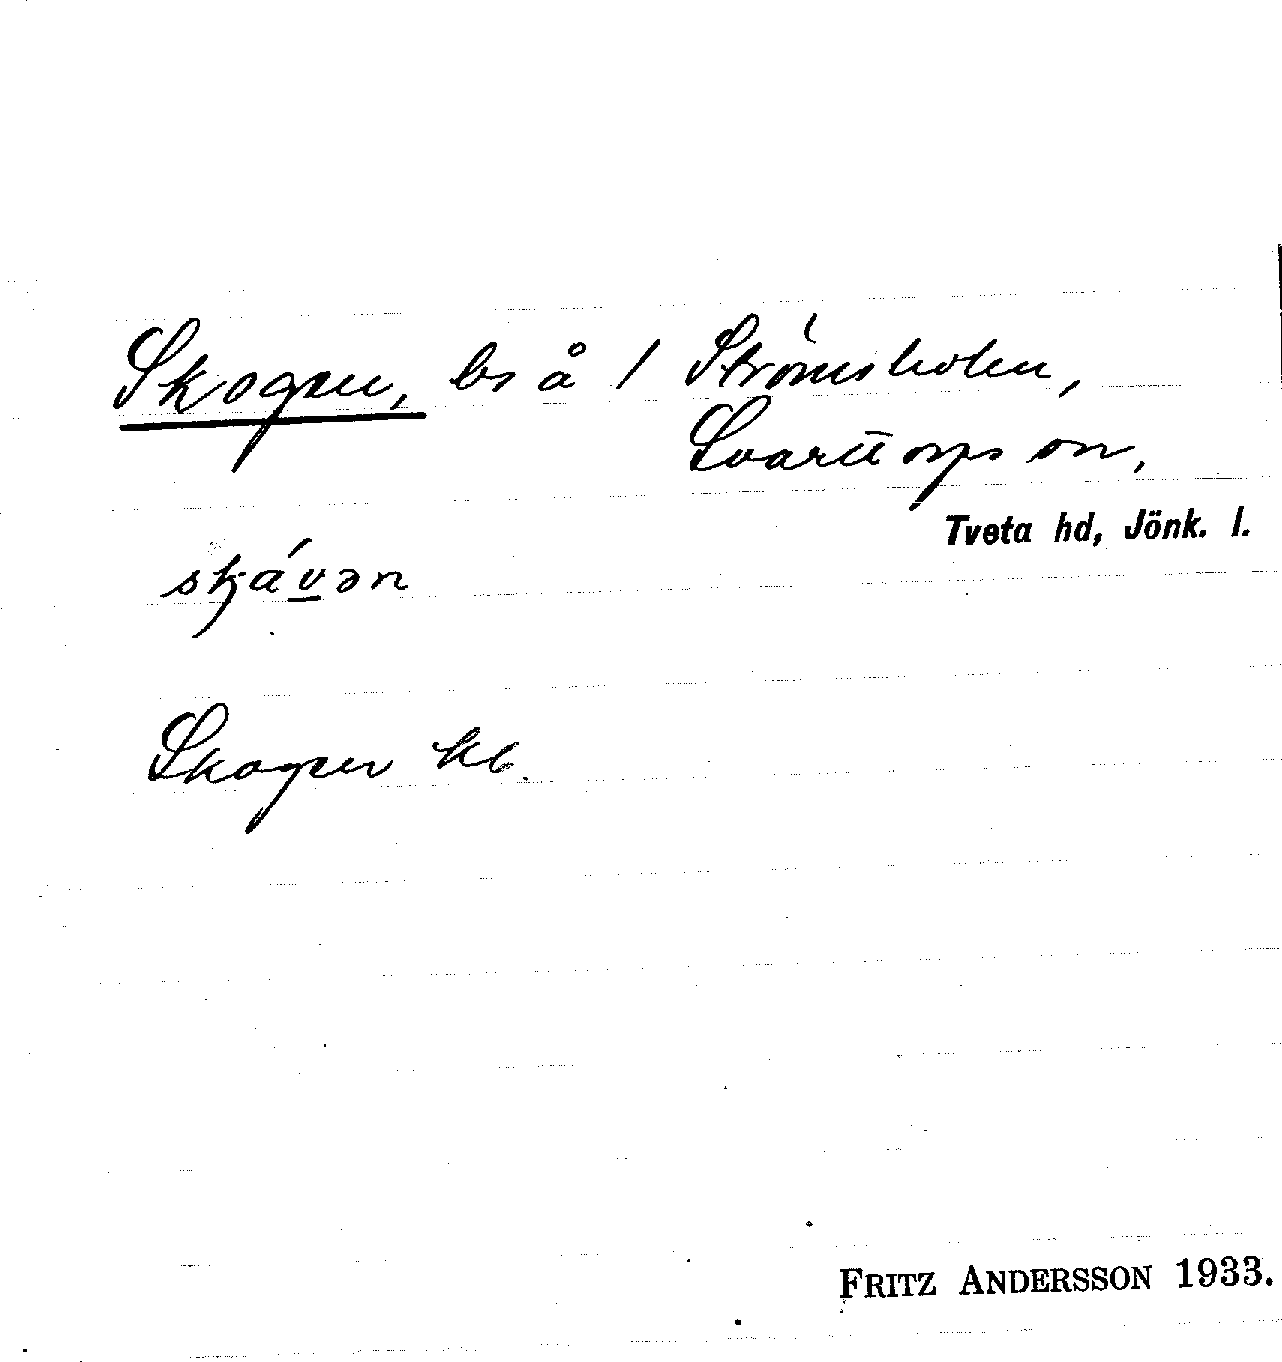 Skogen, bs å 1 Strömsholm,
Svarttorps sn,
Tveta hd, Jönk. l.
Skogen kb.
FRITZ ANDERSSON 1933.